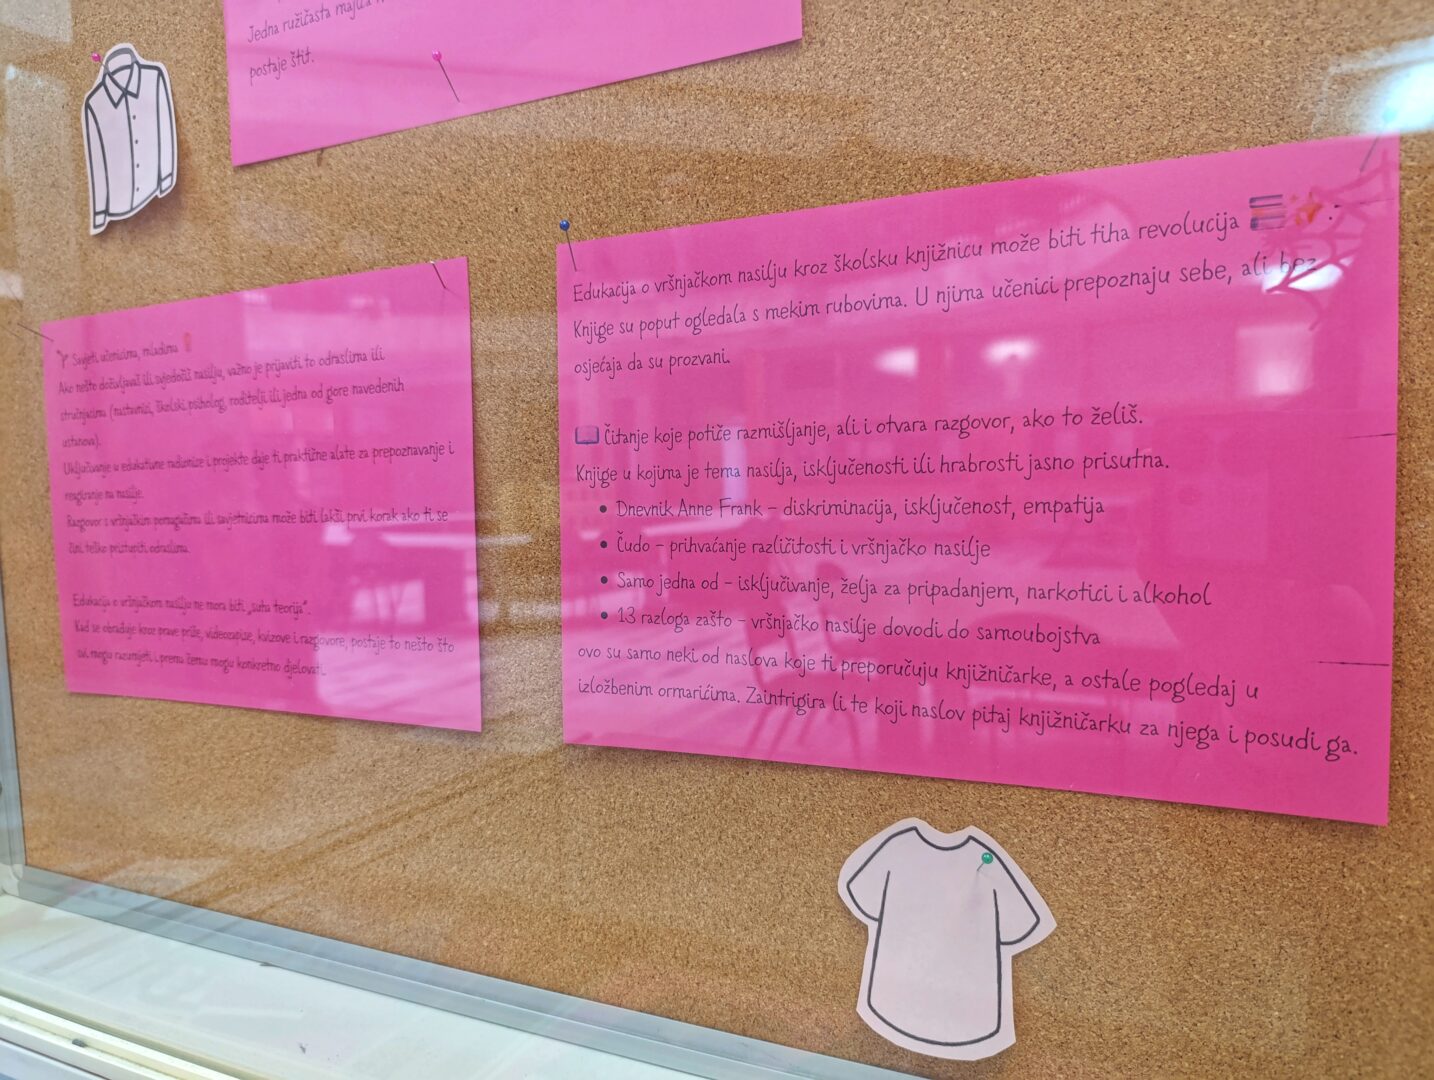 Jedna ružičasta majica
postaje štit.
Savjeti učenicima, mladima
Ako nešto doživljavaš ili svjedočiš nasilju, važno je prijaviti to odraslima ili
stručnjacima (nastavnici, školski psiholog, roditelji ili jedna od gore navedenih
ustanova).
Uključivanje u edukativne radionice i projekte daje ti praktične alate za prepoznavanje i
reagiranje na nasilje.
Razgovor s vršnjačkim pomagačima ili savjetnicima može biti lakši prvi korak ako ti se
čini teško pristupiti odraslima.
Edukacija o vršnjačkom nasilju ne mora biti „suha teorija“.
Kad se obrađuje kroz prave priče, videozapise, kvizove i razgovore, postaje to nešto što
svi mogu razumjeti i prema čemu mogu konkretno djelovati.
Edukacija o vršnjačkom nasilju kroz školsku knjižnicu može biti tiha revolucija
Knjige su poput ogledala s mekim rubovima. U njima učenici prepoznaju sebe, ali bez
osjećaja da su prozvani.
Čitanje koje potiče razmišljanje, ali i otvara razgovor, ako to želiš.
Knjige u kojima je tema nasilja, isključenosti ili hrabrosti jasno prisutna.
• Dnevnik Anne Frank – diskriminacija, isključenost, empatija
• Čudo – prihvaćanje različitosti i vršnjačko nasilje
• Samo jedna od – isključivanje, želja za pripadanjem, narkotici i alkohol
• 13 razloga zašto – vršnjačko nasilje dovodi do samoubojstva
ovo su samo neki od naslova koje ti preporučuju knjižničarke, a ostale pogledaj u
izložbenim ormarićima. Zaintrigira li te koji naslov pitaj knjižničarku za njega i posudi ga.